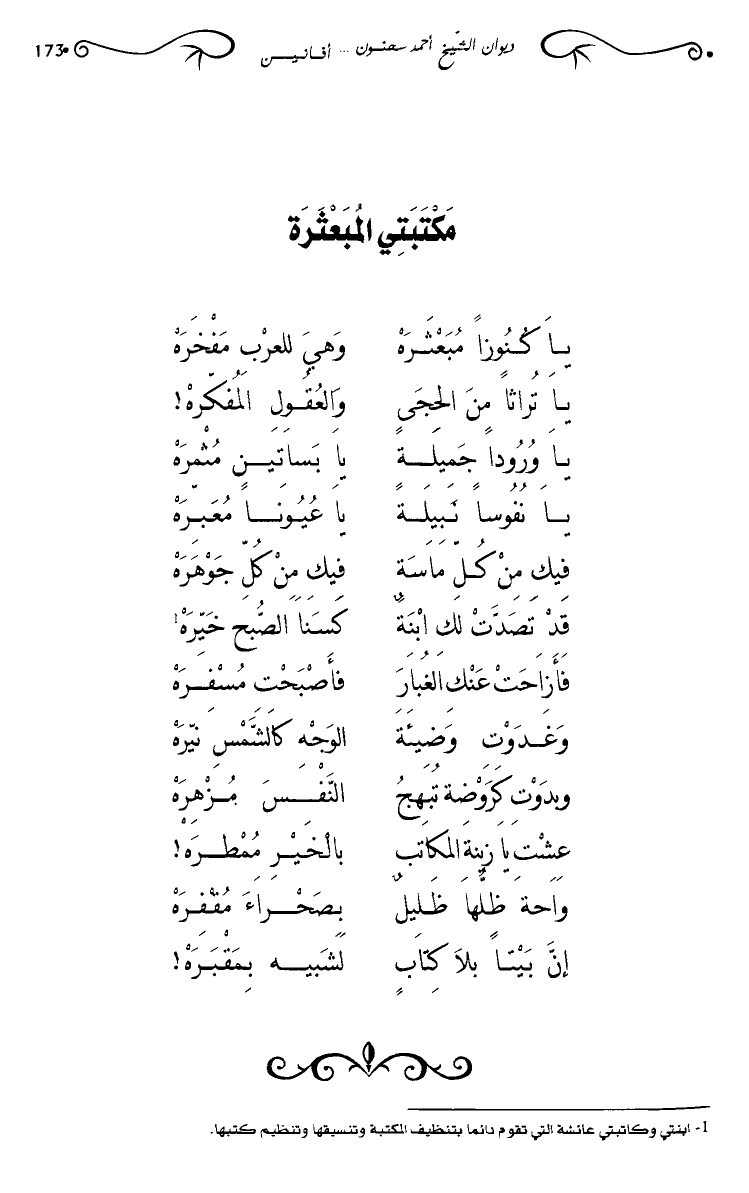 ديوان الشّيخ أحمد سحنون ... أفانين 173
مَكْتَبَتِي المُبَعْثَرَة
يا كُنُوزاً مُبَعْثَرَهْ وَهيَ للعرْبِ مَفْخَرَهْ
يا تُراثاً مِنَ الحِجَى والعُقُولِ المُفكّرهْ!
يا وُرُوداً جَمِيلةً يا بَساتينِ مُثْمرَهْ
يا نُفُوساً نَبِيلةً يا عُيُوناً مُعَبرَهْ
فِيكِ مِنْ كُلّ ماسَةٍ فِيكِ مِنْ كُلّ جَوْهَرَهْ
قَدْ تَصَدَّتْ لكِ ابْنَةٌ كَسَنا الصُّبحِ خَيّرَهْ¹
فَأَزاحَتْ عَنْكِ الغُبارَ فَأَصْبَحْتِ مُسْفِرَهْ
وَغَدَوْتِ وَضِيئَةَ الوَجْهِ كالشَّمْسِ نيّرَهْ
وبدَوْتِ كَرَوْضةٍ تُبهِجُ النَّفْسَ مُزْهِرَهْ
عِشْتِ يا زِينةَ المكاتبِ بالْخَيْرِ مُمْطرَهْ!
واحةً ظلُّها ظَليلٌ بِصَحْراءَ مُقْفِرَهْ
إنَّ بَيْتاً بلاَ كِتابٍ لشَبيهٌ بِمَقْبَرَهْ!
1- ابنتي وكاتبتي عائشة التي تقوم دائما بتنظيف المكتبة وتنسيقها وتنظيم كتبها.